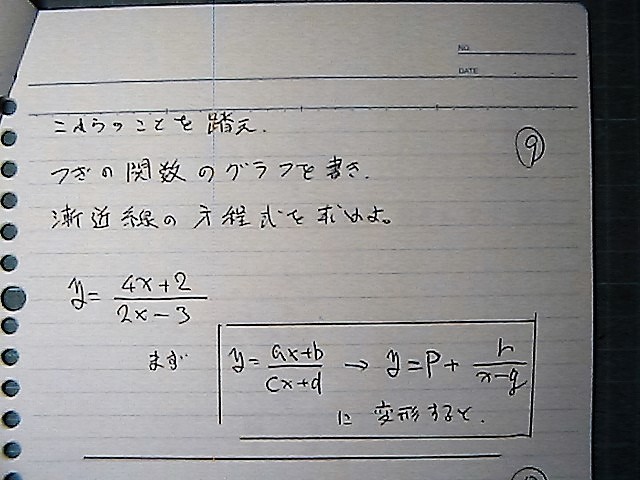 NO.
DATE
これらのことを踏え.
⑨
つぎの関数のグラフを書き.
漸近線の方程式を求めよ。
y = \frac{4x+2}{2x-3}
まず y = \frac{ax+b}{cx+d} → y = P + \frac{h}{x-q}
に変形すると.